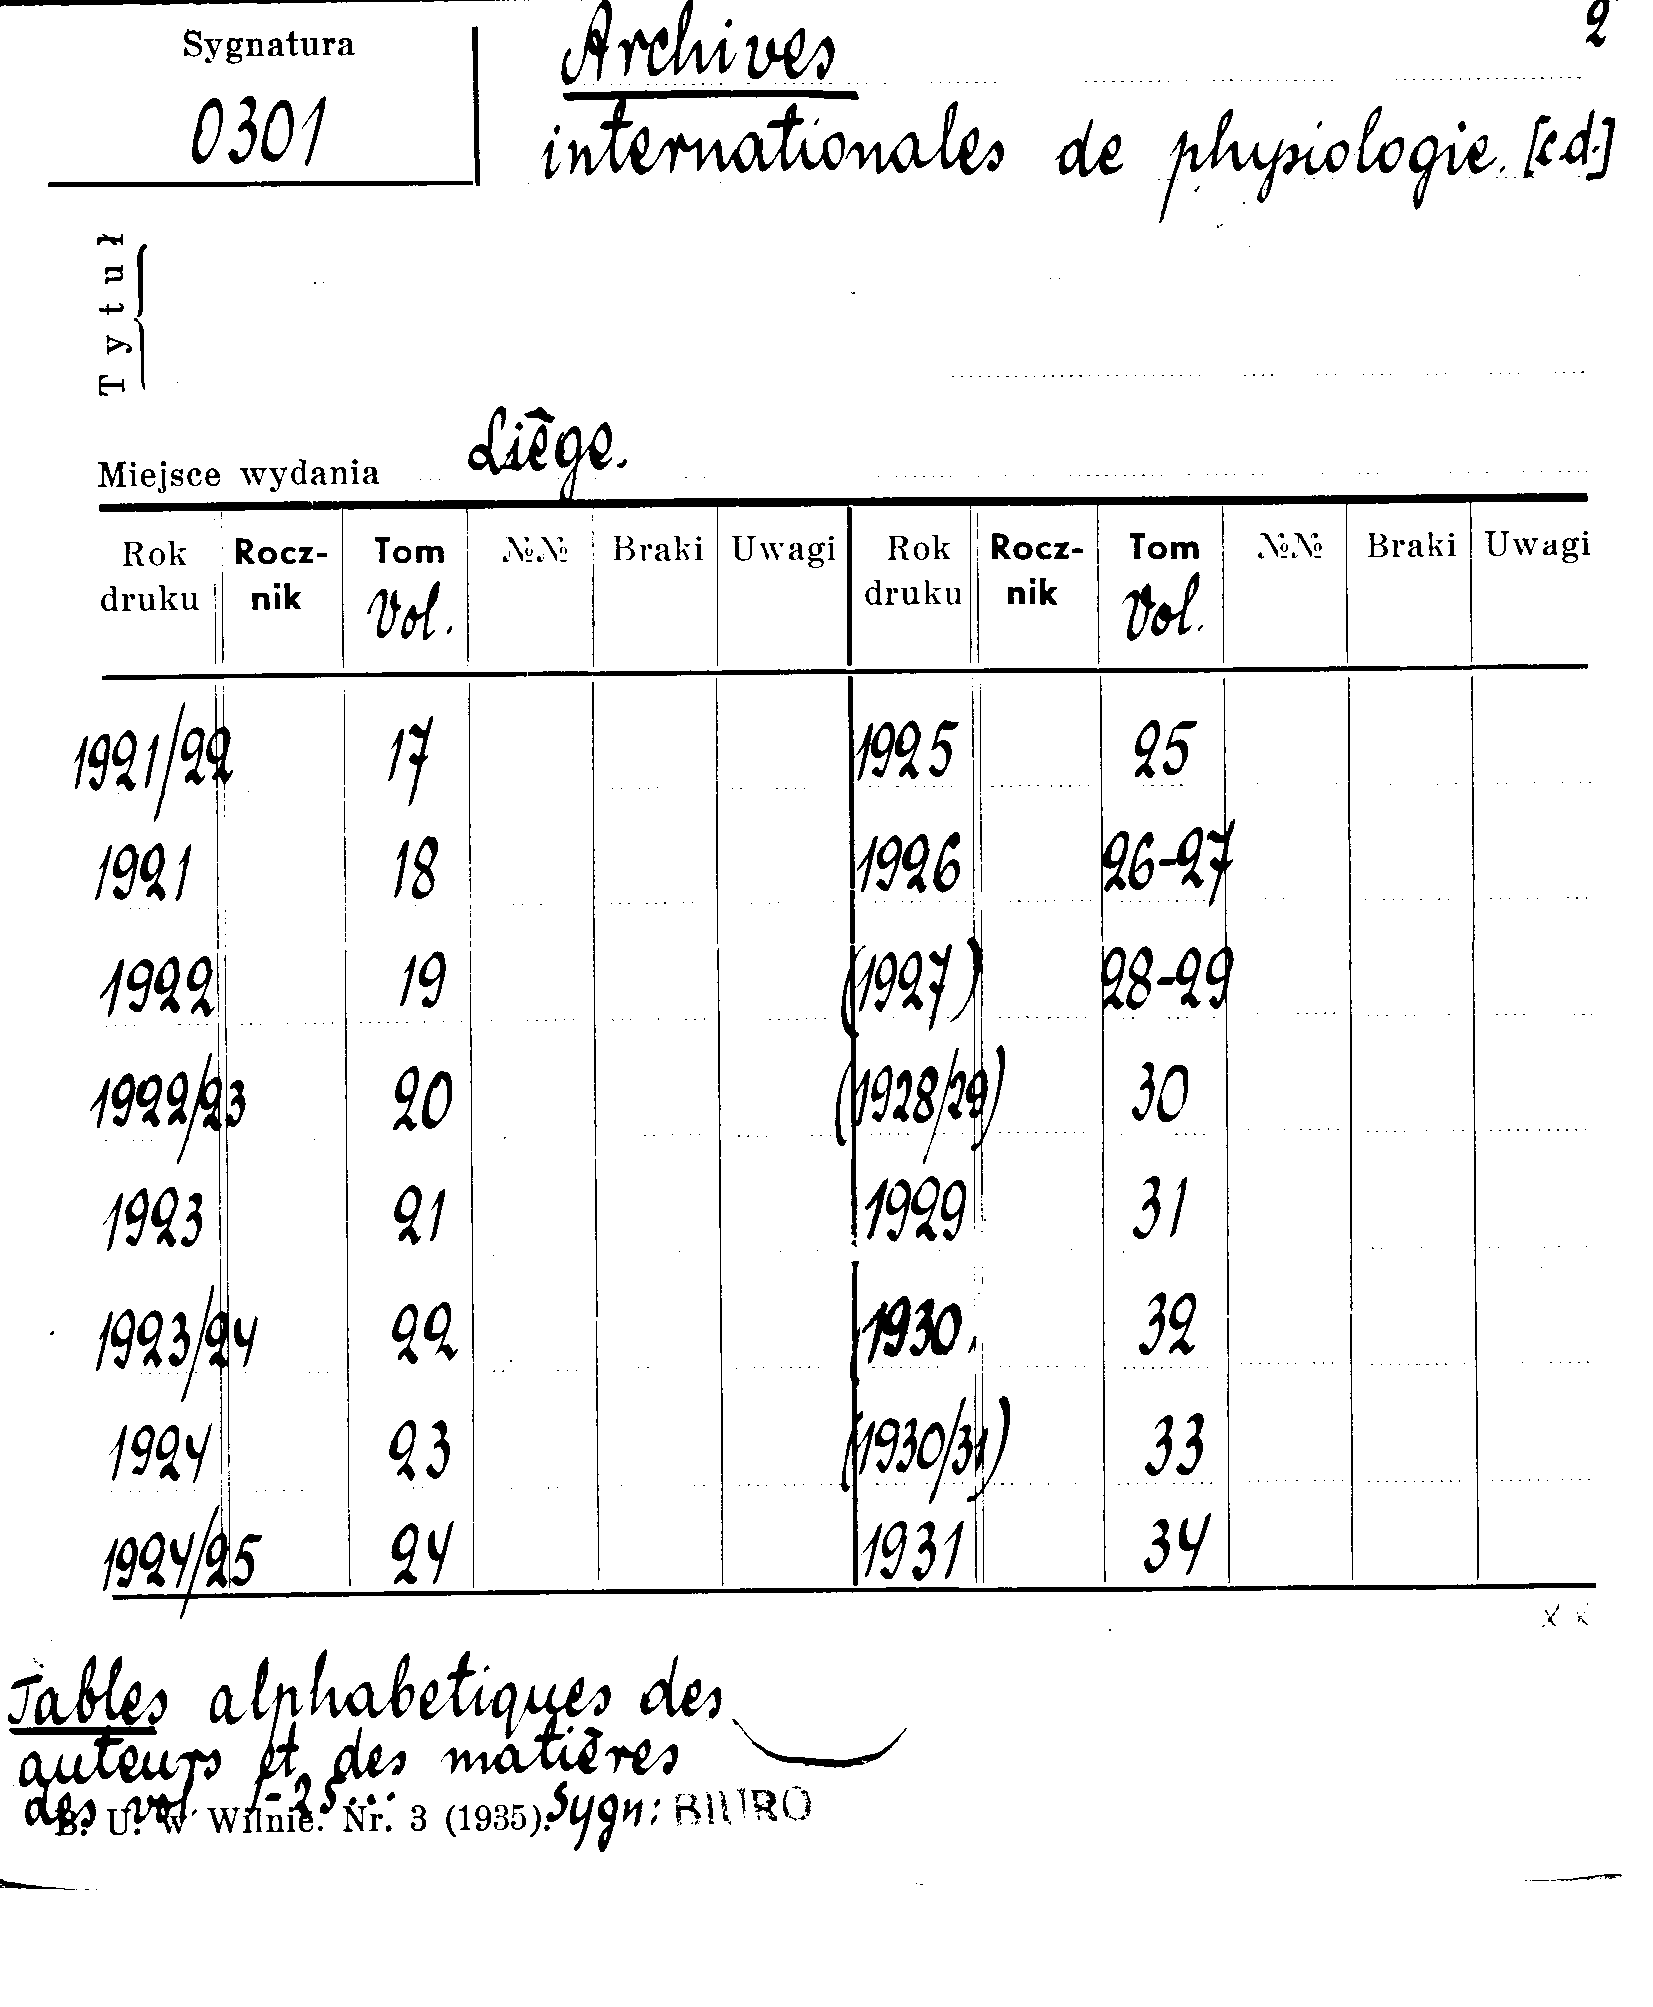 Sygnatura
0301
Archives
2
internationales de physiologie. [c.d.]
Tytuł
Miejsce wydania Liêge.
Rok druku Rocznik Tom Vol. №№ Braki Uwagi Rok druku Rocznik Tom Vol. №№ Braki Uwagi
1921/22 17 1925 25
1921 18 1926 26-27
1922 19 (1927) 28-29
1922/23 20 (1928/29) 30
1923 21 1929 31
1923/24 22 1930. 32
1924 23 (1930/31) 33
1924/25 24 1931 34
x x
Tables alphabetiques des
auteurs et des matiêres
des vol. 1-25...
B. U. w Wilnie. Nr. 3 (1935). Sygn: BIURO